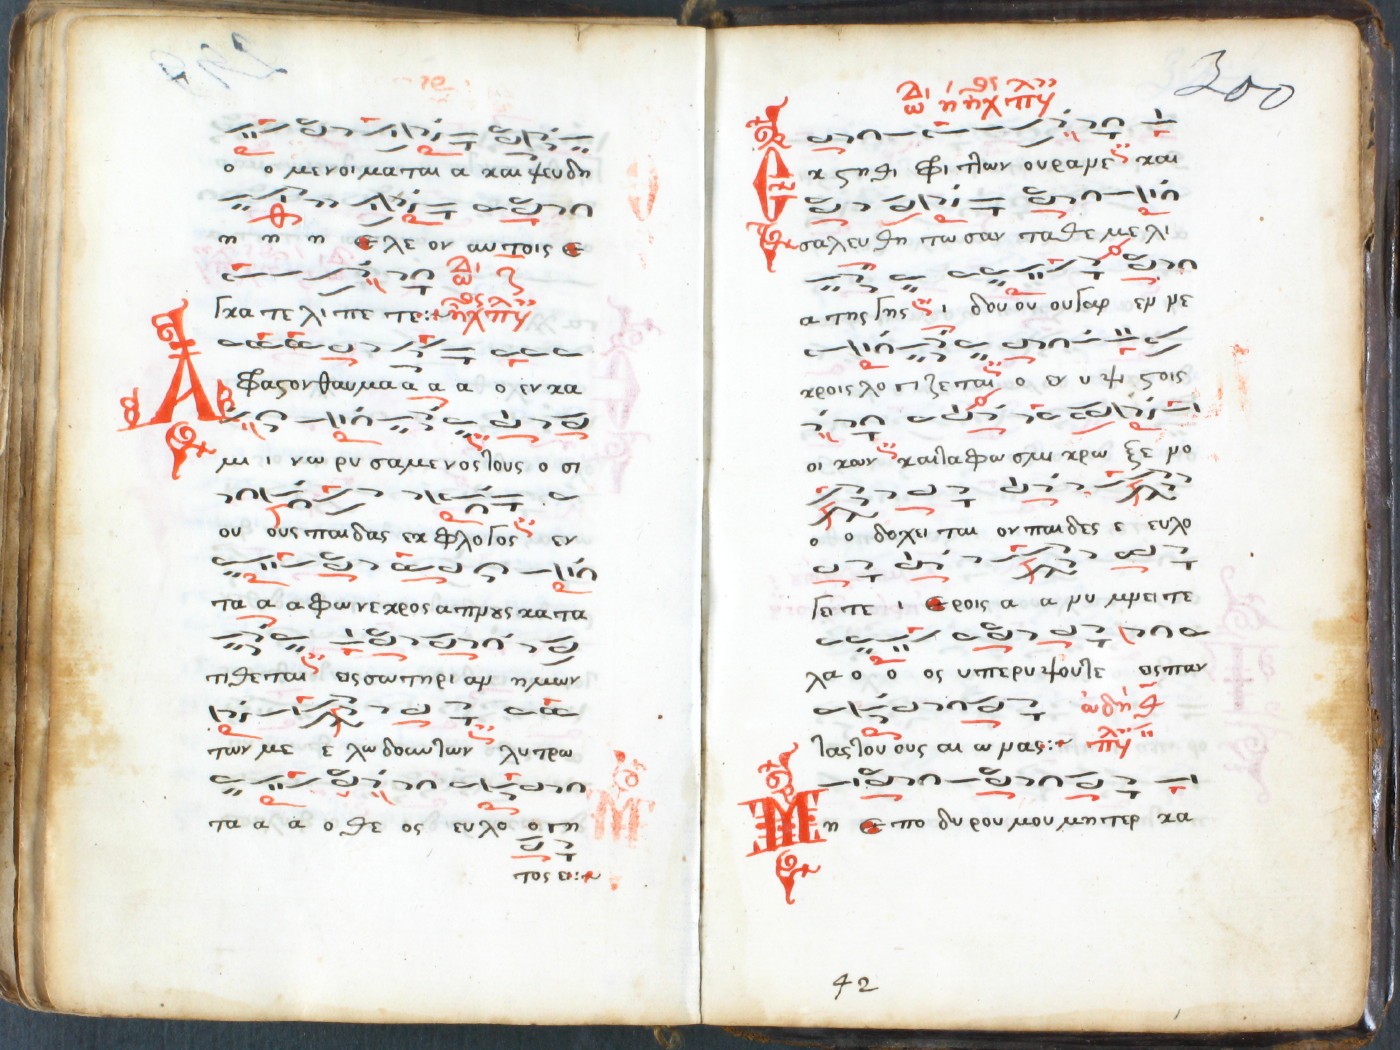 ο ο μενοι μαται α και ψευδη
η η η ελε ον αυτοις ε
γκα τε λι πε τε:
Αφραστον θαυμα α α α ο εν κα
μι ι νω ρυ σαμενος τους ο σι
ου ους παιδας εκ φλογος εν
τα α α φω νεκρος απνους κατα
τιθεται εις σωτηρι αμ ημων
των με ε λωδουντων λυτρω
τα α α ο θε ος ευλο ο γη
τος ει:
300
Εκστηθι φριττων ουρανε και
σαλευ θη τω σαν τα θε με λι
α της γης ι δου ου ου γαρ εν νε
κροις λο γι ζεται ο εν υ ψι στοις
οι κων και ταφω σμι κρω ξε νο
ο ο δοχει ται ον παιδες ε ευλο
γει τε ι ερεις α α νυ μνειτε
λα ο ο ος υπερυψουτε εις παν
τας του ους αι ω νας: ωδη θ
Μη επο δυρου μου μητερ κα
42